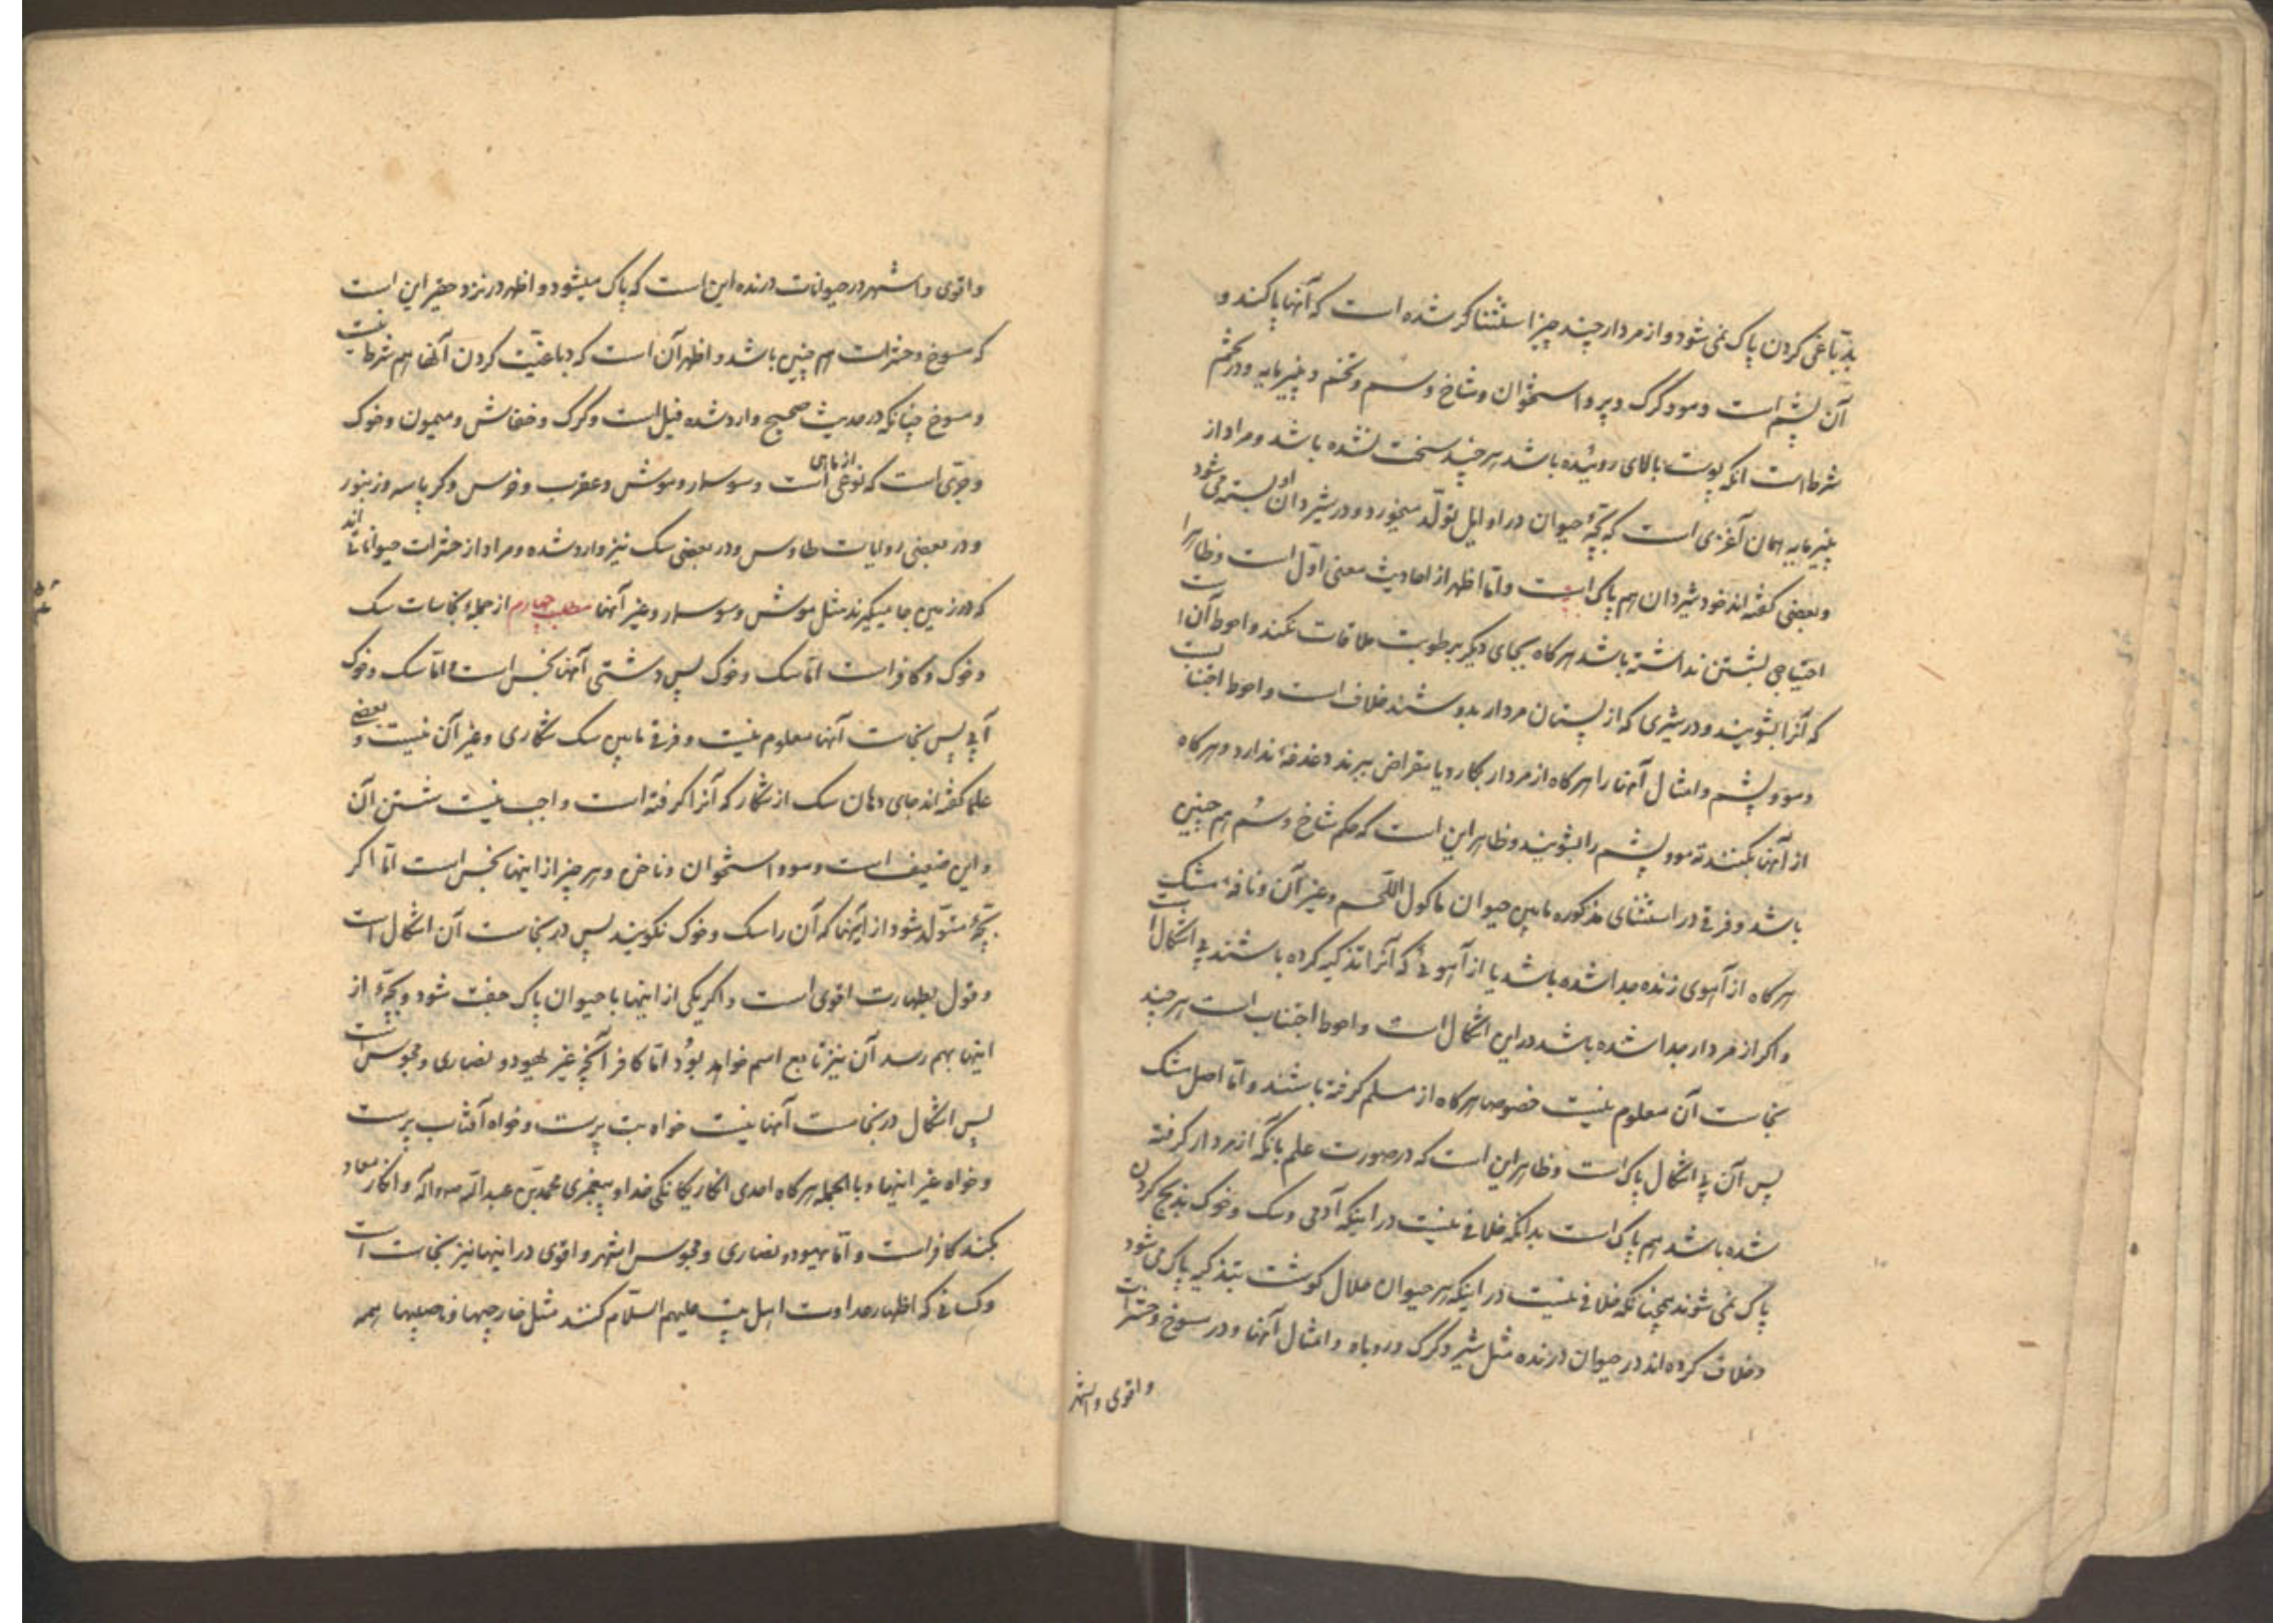 بدبّاغی کردن پاک نمی شود و از مردار چند چیز استثنا کرشده است که آنها پاکند و
آن پشم است و مو و کرک و پر و استخوان و شاخ و سم و تخم و پنیرمایه و در تخم
شرط است انکه پوست بالای روئیده باشد هر چند سخت نشده باشد و مراد از
پنیرمایه همان آغزی است که بچّهٔ حیوان در اوایل تولّد میخورد و در شیردان او بسته می شود
و بعضی کفته اند خود شیردان هم پاک است و امّا اظهر از احادیث معنی اوّل است و ظاهرا
احتیاجی بشستن نداشته باشد هر کاه بجای دیکر برطوبت ملاقات نکند و احوط آن است
که آنرا بشویند و در شیری که از پستان مردار بدوشند خلاف است و احوط اجتناب است
و مو و پشم و امثال آنها را هر کاه از مردار بکارد یا مقراض ببرند دغدغهٔ ندارد و هر کاه
از آنها بکنند ته مو و پشم را بشویند و ظاهر این است که حکم شاخ و سُم هم چنین
باشد و فرقی در استثنای مذکوره مابین حیوان ماکول اللّحم و غیر آن و نافهٔ مشک
هر کاه از آهوی زنده جدا شده باشد یا از آهوئی که آنرا تذکیه کرده باشند بی اشکال است
و اکر از مردار جدا شده باشد در این اشکال است و احوط اجتناب است هر چند
نجاست آن معلوم نیست خصوصا هر کاه از مسلم کرفته باشند و امّا اصل مشک
پس آن بی اشکال پاک است و ظاهر این است که در صورت علم بانکه از مردار کرفته
شده باشد هم پاک است بدانکه خلافی نیست در اینکه آدمی و سک و خوک بذبح کردن
پاک نمی شوند همچنانکه خلافی نیست در اینکه هر حیوان حلال کوشت بتذکیه پاک می شود
و خلاف کرده اند در حیوان درنده مثل شیر و کرک و روباه و امثال آنها و در مسوخ و حشرات
و اقوی و اشهر
و اقوی و اشهر در حیوانات درنده این است که پاک میشود و اظهر در نزد حقیر این است
که مسوخ و حشرات هم چنین باشد و اظهر آن است که دباغت کردن آنها هم شرط نیست
و مسوخ چنانکه در حدیث صحیح وارد شده فیل است و کرک و خفاش و میمون و خوک
و جرّی است که نوعی از ماهی است و سوسمار و موش و عقرب و خرس و کرپاسه و زنبور
و در بعضی روایات طاوس و در بعضی سک نیز وارد شده و مراد از حشرات حیواناتی اند
که در زمین جا میکیرند مثل موش و سوسمار و غیر آنها مطلب چهارم از جملهٔ نجاسات سک
و خوک و کافر است امّا سک و خوک پس دشتی آنها نجس است و امّا سک و خوک
آبی پس نجاست آنها معلوم نیست و فرقی مابین سک شکاری و غیر آن نیست و بعضی
علما کفته اند جای دهان سک از شکار که آنرا کرفته است واجب نیست شستن آن
و این ضعیف است و مو و استخوان و ناخن و هر چیز از اینها نجس است امّا اکر
بچّهٔ متولّد شود از اینها که آن را سک و خوک نکویند پس در نجاست آن اشکال است
و قول بطهارت اقوی است و اکر یکی از اینها با حیوان پاک جفت شود و بچّهٔ از
اینها بهم رسد آن نیز تابع اسم خواهد بوُد امّا کافر آنچه غیر یهود و نصاری و مجوس است
پس اشکال در نجاست آنها نیست خواه بت پرست و خواه آفتاب پرست
و خواه غیر اینها و بالجمله هر کاه احدی انکار یکانکی خدا و پیغمبری محمّد بن عبداللّه ص و آله و انکار معاد
بکند کافر است و امّا یهود و نصاری و مجوس اشهر و اقوی در اینها نیز نجاست است
و کسانی که اظهار عداوت اهل بیت علیهم السّلام کنند مثل خارجیها و ناصبیها همه